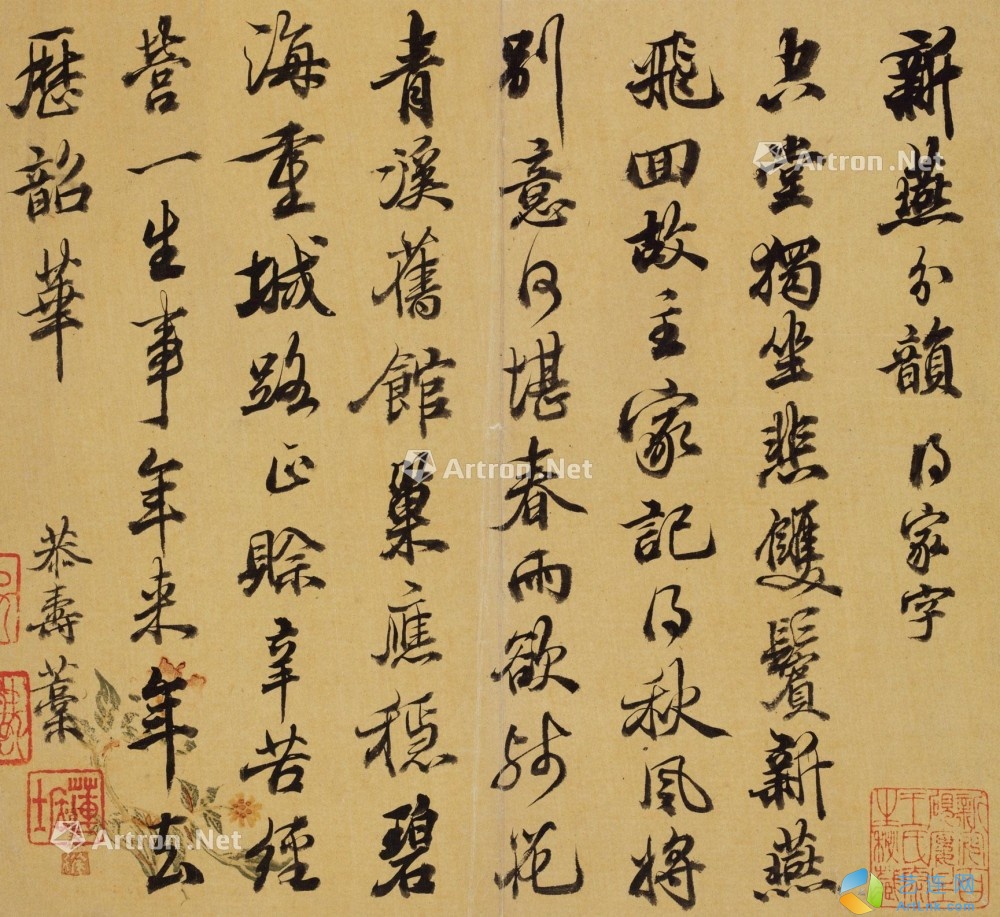 新燕分韻 得家字
空堂獨坐悲雙鬢新燕
飛回故主家記得秋風將
別意何堪春雨欲殘花
青溪舊館巢應穩碧
海重城路正賒辛苦經
營一生事年年来年去
歷韶華
恭壽藁
Artron.Net
Artron.Net
Artron.Net
Artron.Net